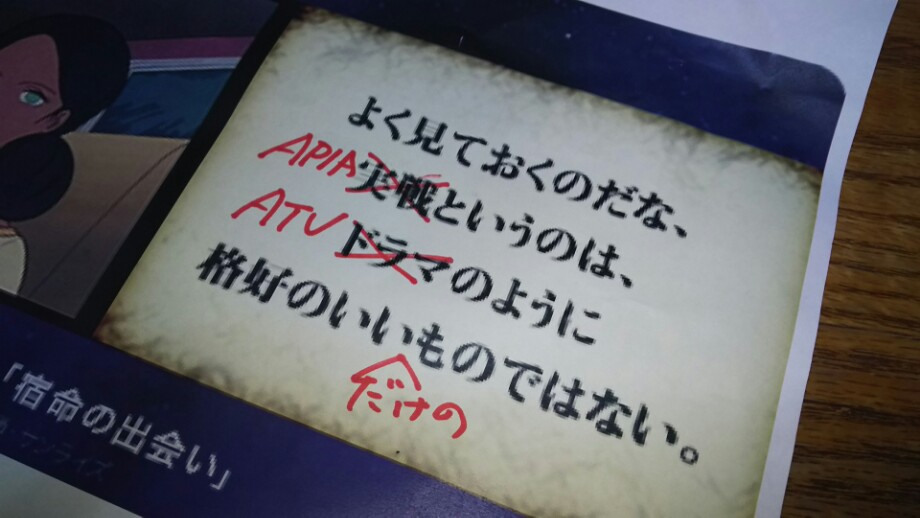 よく見ておくのだな、
APIA実戦というのは、
ATVドラマのように
格好のいいものではない。
だけの
「宿命の出会い」
サンライズ